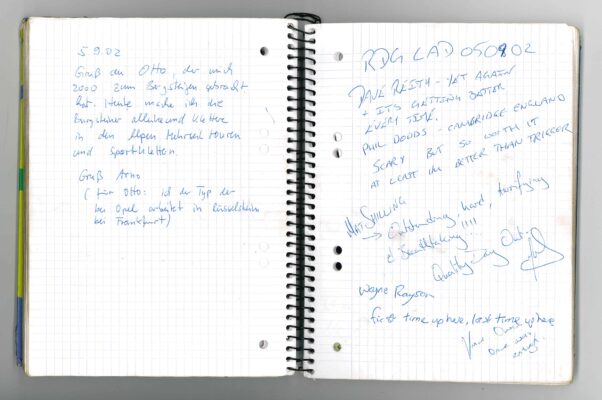 5.9.02
Gruß an Otto, der mich
2000 zum Bergsteigen gebracht
hat. Heute mache ich die
Bergsteiner alleine und klettere
in den Alpen Mehrseiltouren
und Sportklettern.
Gruß Arno
(für Otto: ich der Typ der
bei Opel arbeitet in Rüsselsheim
bei Frankfurt)
RDG LAD 050902
DAVE REITH - YET AGAIN
+ ITS GETTING BETTER
EVERY TIME.
PHIL DODDS - CAMBRIDGE ENGLAND
SCARY BUT SO WORTH IT
AT LEAST I'M BETTER THAN TRIGGER
MAT SHILLING
→ Outstanding, hard, terrifying
& Breathtaking!!!!
Quality Day Out.
Wayne Rayson
first time up here, last time up here
once was
enough.